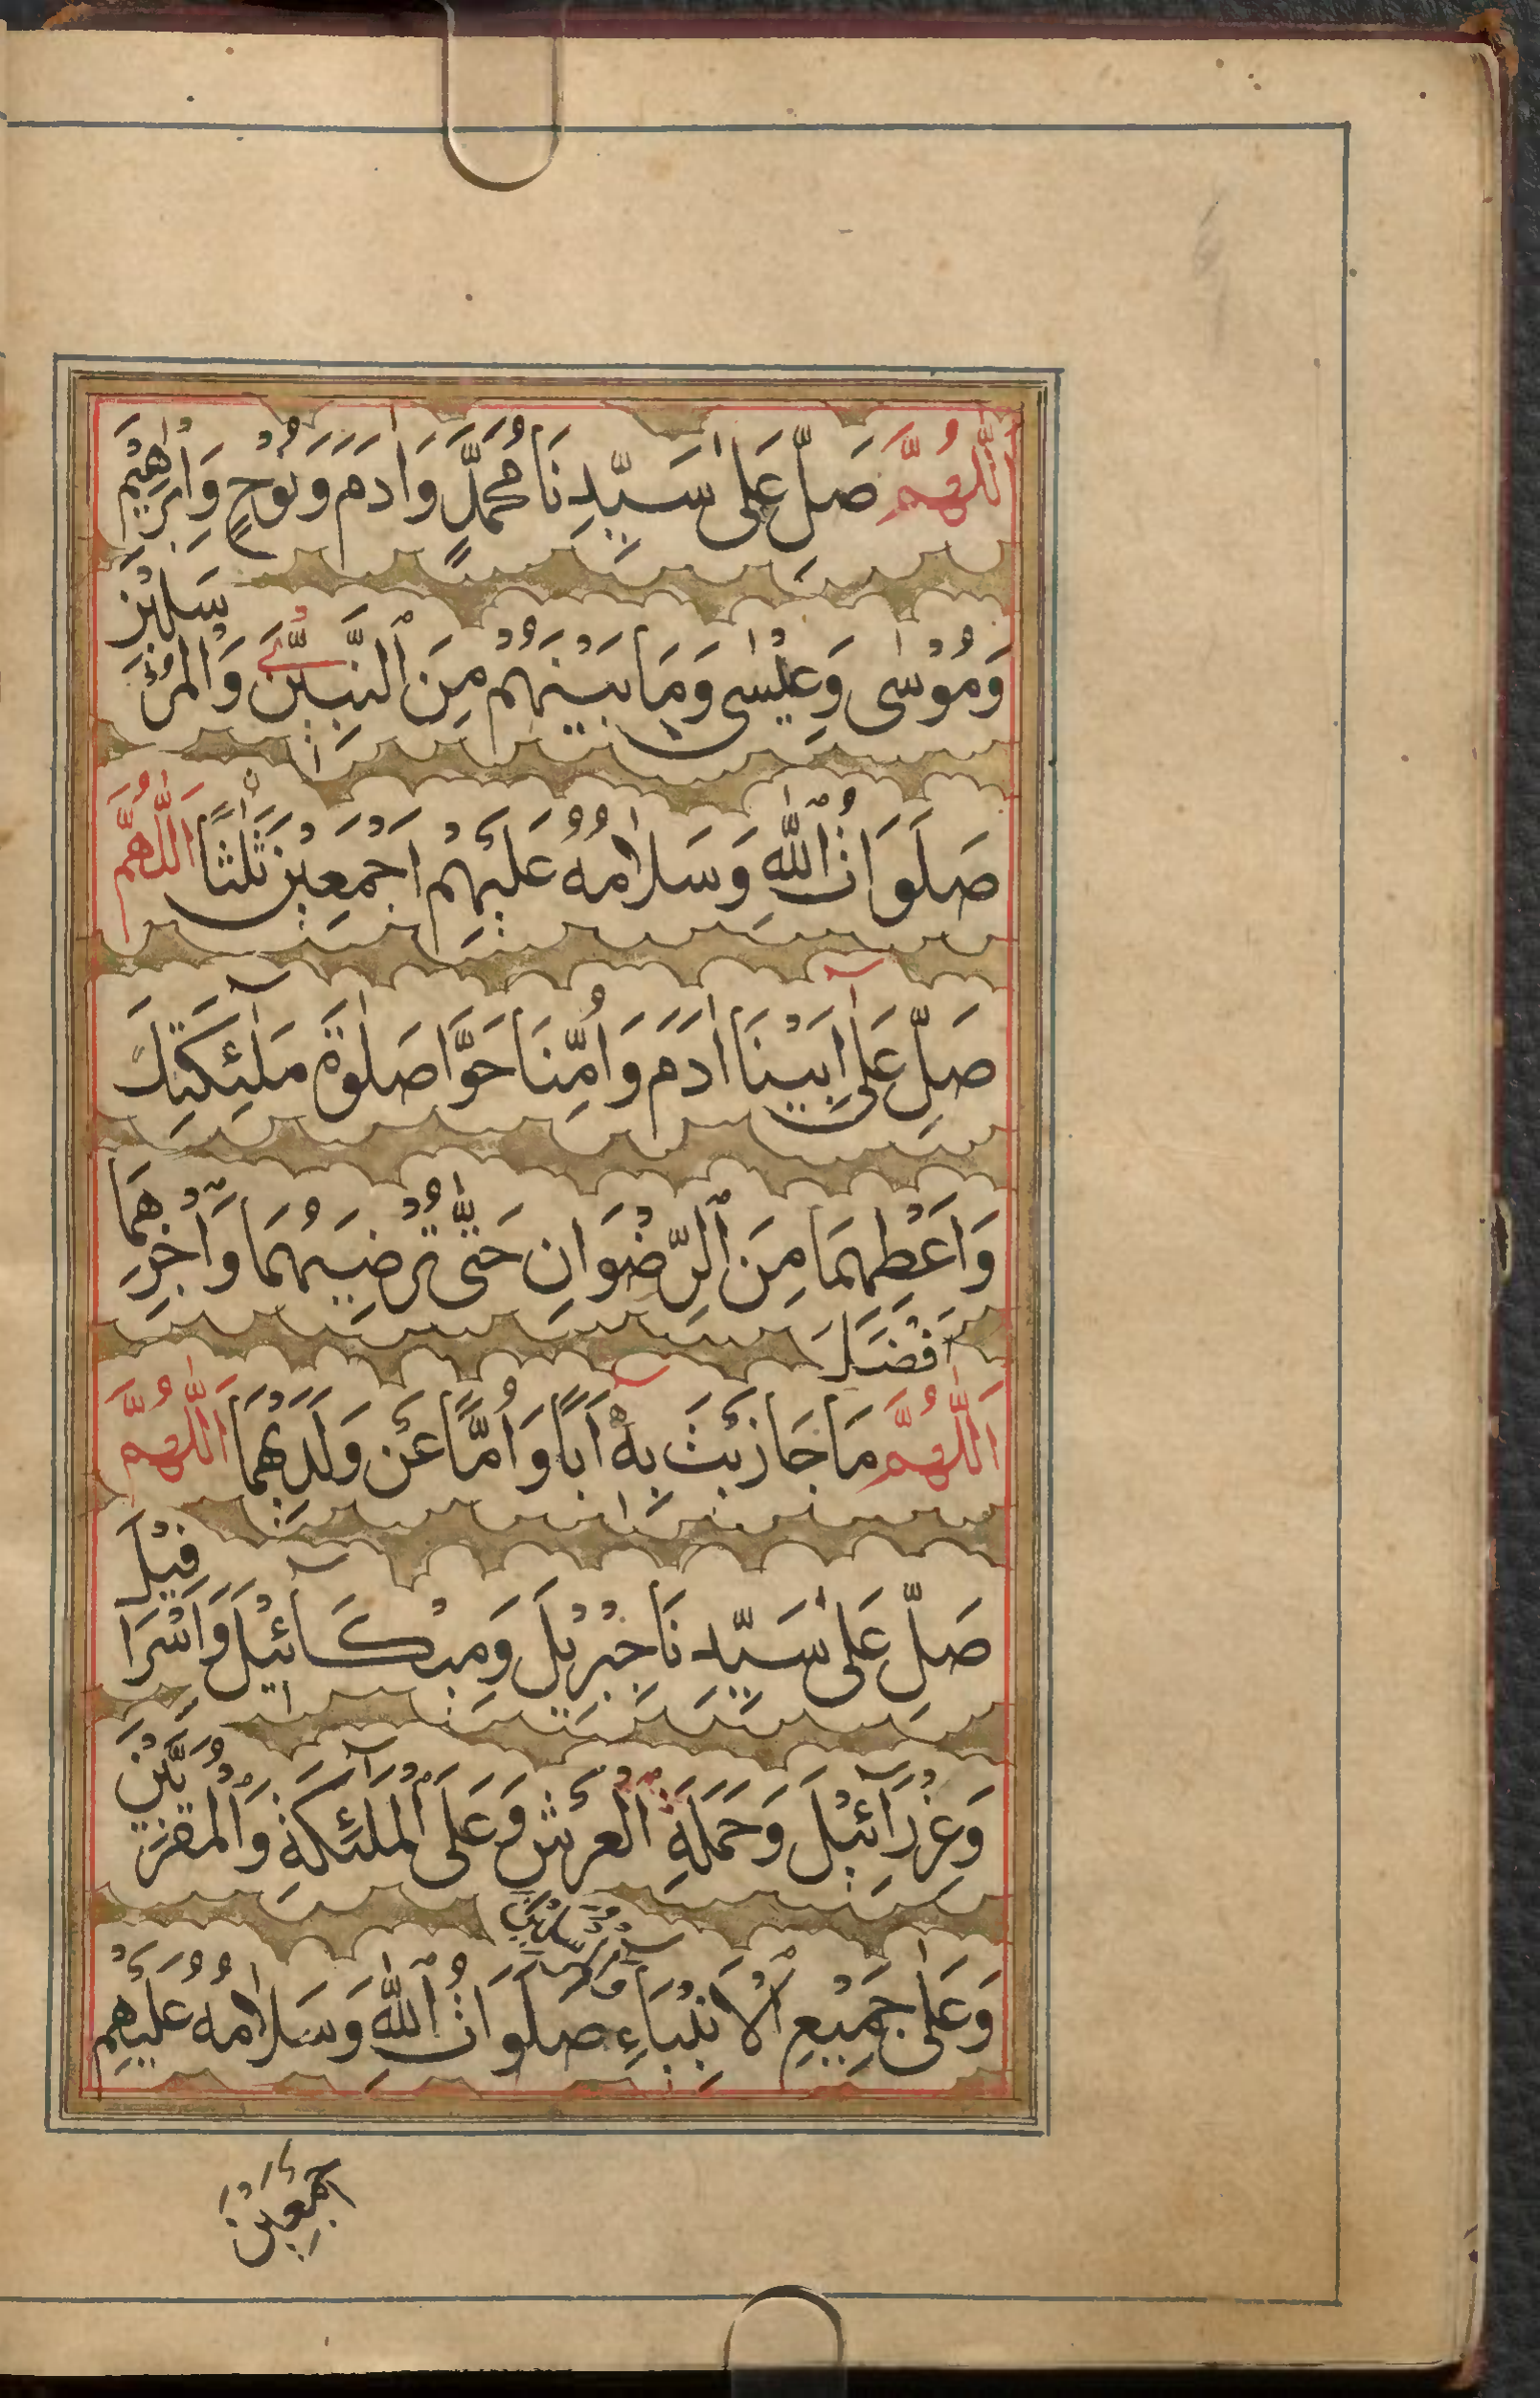 اَللّٰهُمَّ صَلِّ عَلٰى سَيِّدِنَا مُحَمَّدٍ وَاٰدَمَ وَنُوْحٍ وَاِبْرٰهِيْمَ
وَمُوْسٰى وَعِيْسٰى وَمَا بَيْنَهُمْ مِنَ ٱلنَّبِيّٖنَ وَالْمُرْسَلِيْنَ
صَلَوَاتُ ٱللّٰهِ وَسَلَامُهُ عَلَيْهِمْ اَجْمَعِيْنَ ثَلٰثًا اَللّٰهُمَّ
صَلِّ عَلٰٓى اَبِيْنَا اٰدَمَ وَاُمِّنَا حَوَّا صَلٰوةَ مَلٰٓئِكَتِكَ
وَاَعْطِهِمَا مِنَ ٱلرِّضْوَانِ حَتّٰى تُرْضِيَهُمَا وَٱجْزِهِمَا
اَللّٰهُمَّ اَفْضَلَ مَا جَازَيْتَ بِهٖٓ اَبًا وَاُمًّا عَنْ وَلَدَيْهِمَا اَللّٰهُمَّ
صَلِّ عَلٰى سَيِّدِنَا جِبْرِيْلَ وَمِيْكَآئِيْلَ وَاِسْرَافِيْلَ
وَعِزْرَآئِيْلَ وَحَمَلَةِ ٱلْعَرْشِ وَعَلَى ٱلْمَلٰٓئِكَةِ وَٱلْمُقَرَّبِيْنَ
وَعَلٰى جَمِيْعِ ٱلْاَنْبِيَآءِ وَالْمُرْسَلِيْنَ صَلَوَاتُ ٱللّٰهِ وَسَلَامُهُ عَلَيْهِمْ
اَجْمَعِيْنَ